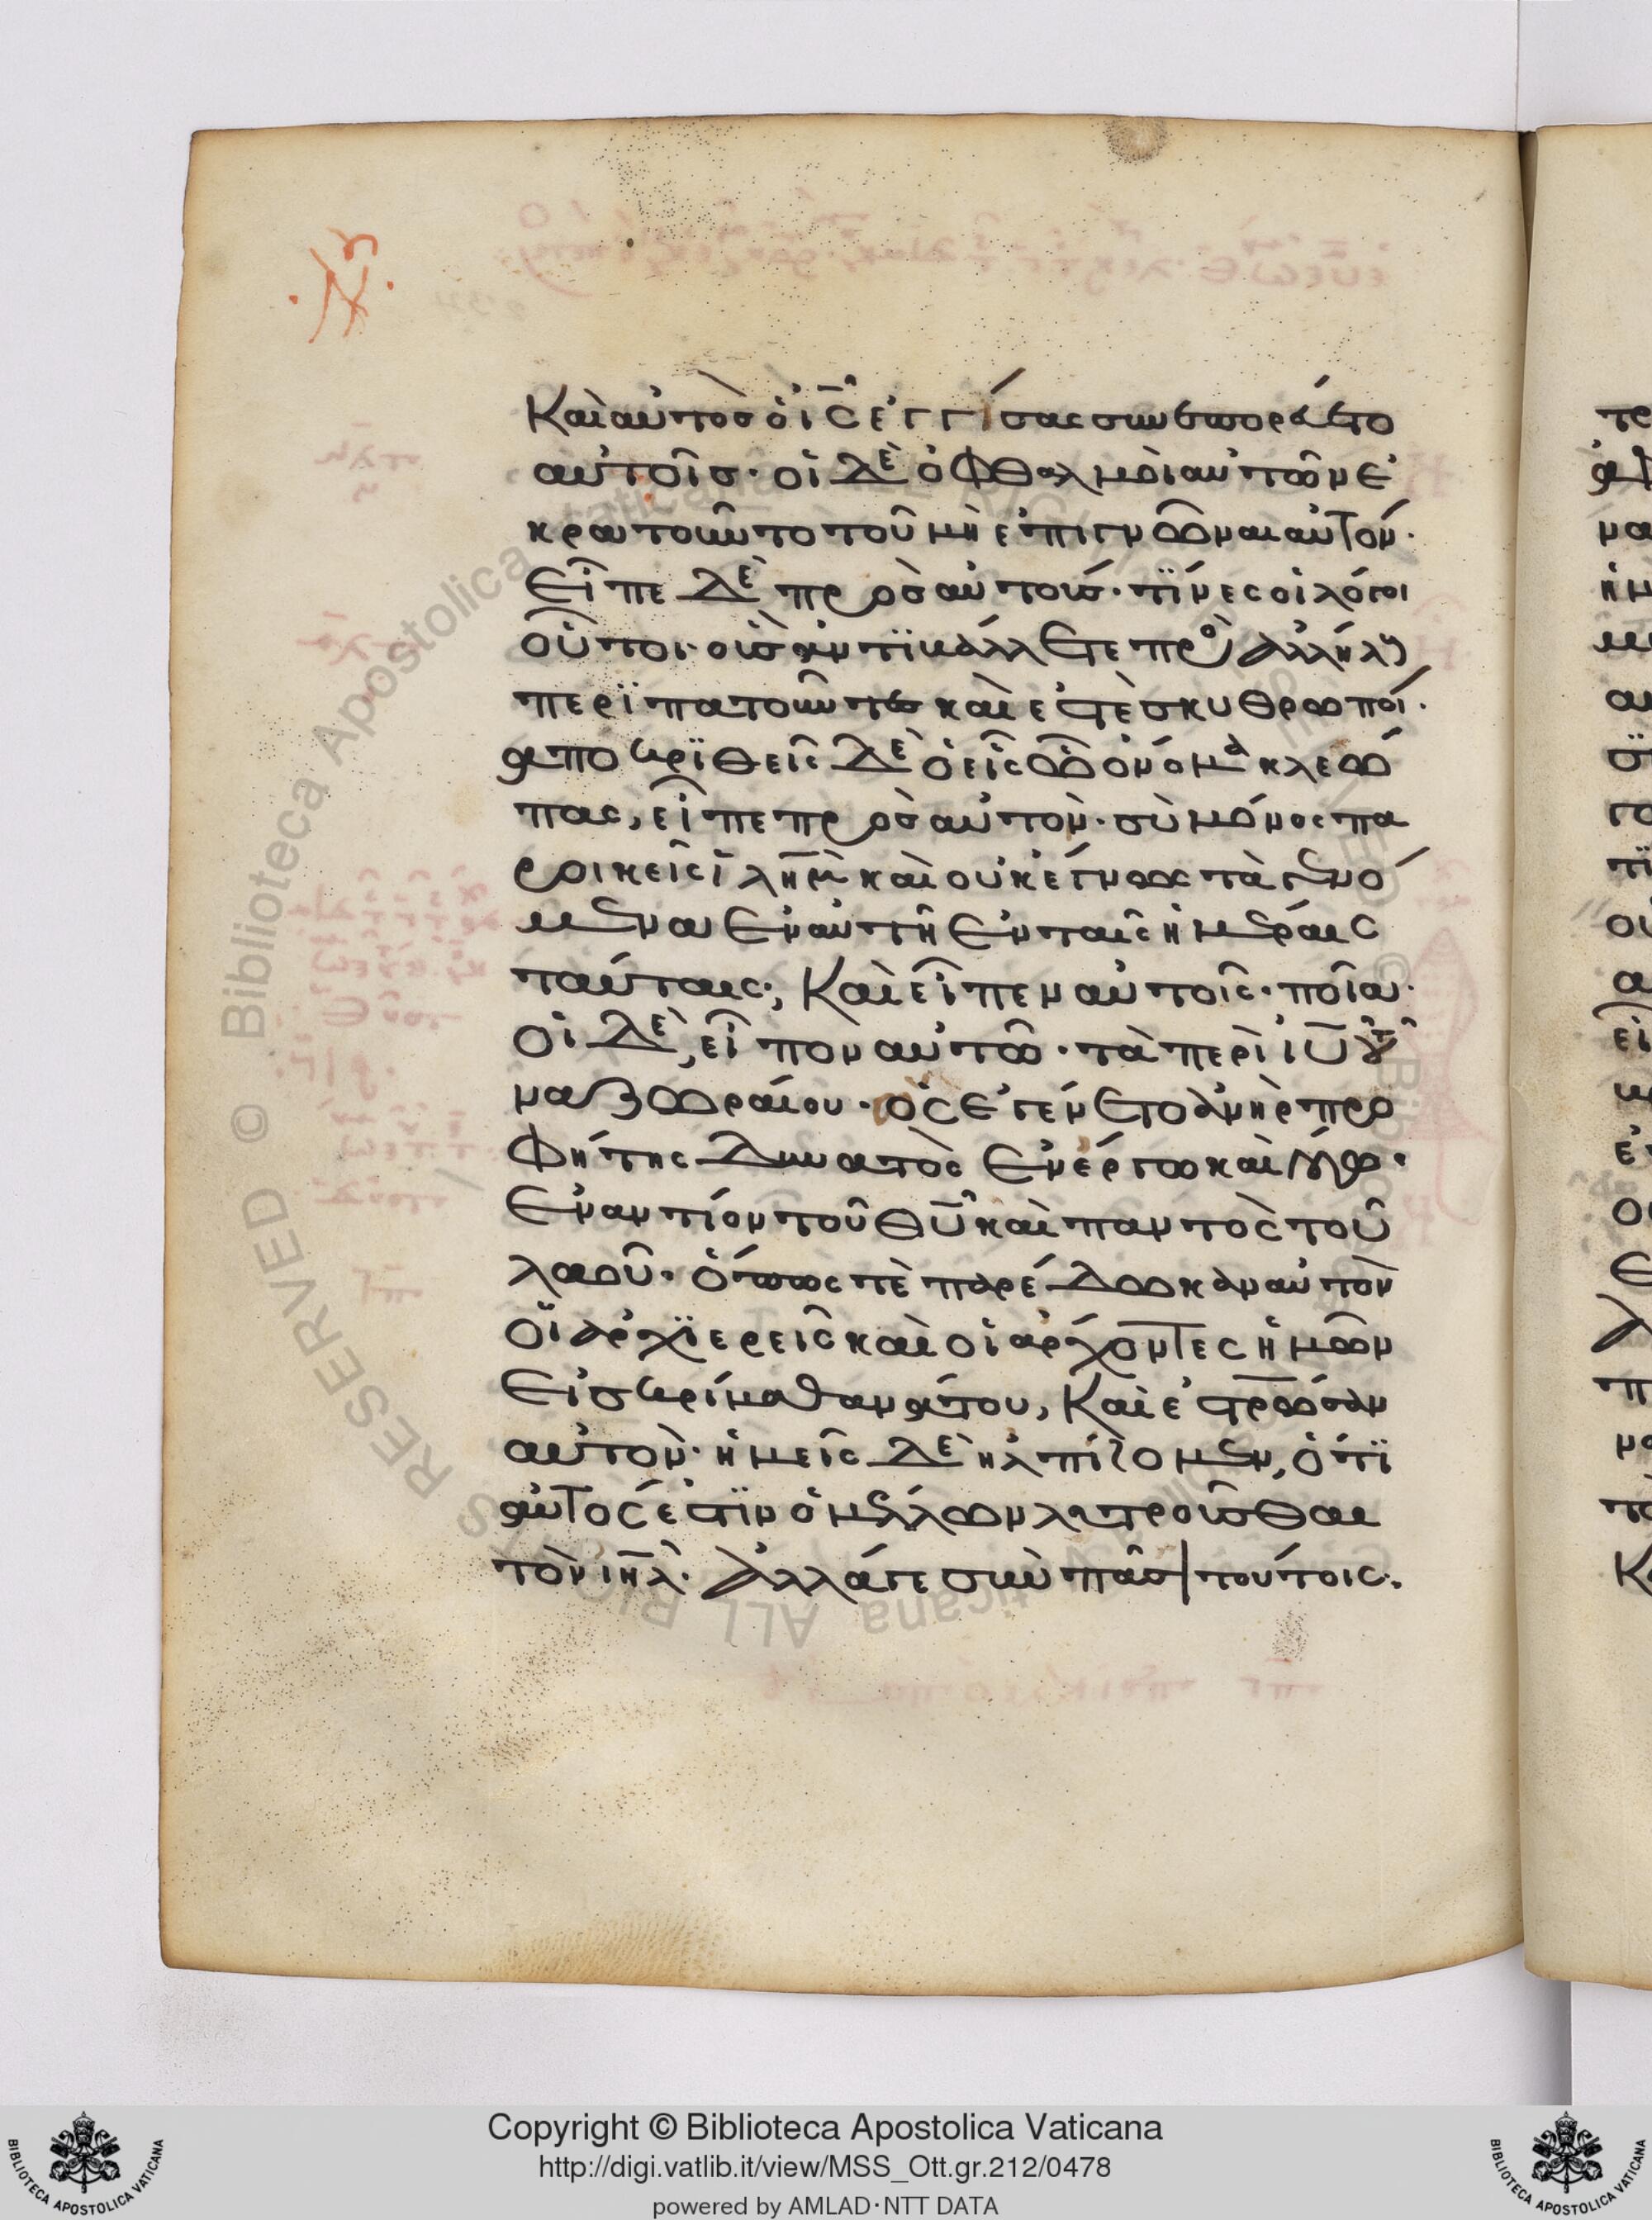 Καὶ αὐτὸσ ὁ ι̅ς̅ ἐγγίσας συνεπορεύετο
αὐτοῖσ· οἱ δὲ ὀφθαλμοὶ αὐτῶν ἐ
κρατοῦντο τοῦ μὴ ἐπιγνῶναι αὐτόν·
Εἶπε δὲ πρὸσ αὐτούσ· τΐνες οἱ λόγοι
οὗτοι· οὓσ ἀντϊβάλλετε πρὸς ἀλλήλους
περϊπατοῦντες καὶ ἐστὲ σκυθρωποί·
ἀποκρϊθεὶς δὲ ὁ εἷς ὧ ὄνομα κλεώ
πας, εἶπε πρὸσ αὐτὸν· σὺ μόνος πα
ροικεῖς ι̅λ̅η̅μ̅ καὶ οὐκ ἔγνως τὰ γενό
μενα ἐν αὐτῆ ἐν ταῖς ἡμέραις
ταύταις; Καὶ εἶπεν αὐτοῖς· ποῖα·
Οἱ δὲ, εἶπον αὐτῶ· τὰ περὶ ι̅υ̅ τοῦ
ναζωραίου· ὃς ἐγένετο ἀνὴρ προ
φήτης δυνατὸς ἐν ἔργω καὶ λόγω·
ἐναντίον τοῦ θ̅υ̅ καὶ παντὸς τοῦ
λαοῦ· ὅπως τὲ παρέδωκαν αὐτὸν
οἱ ἀρχϊερεῖς καὶ οἱ ἄρχοντες ἡμῶν
εἰσ κρίμα θανάτου, Καὶ ἐστρωσαν
αὐτὸν· ἡμεῖς δὲ ἠλπίζομεν, ὅτϊ
αὐτός ἐστϊν ὁ μέλλων λυτροῦσθαι
τὸν ι̅η̅λ̅· Ἀλλάγε σὺν πᾶσι τούτοις·
Copyright © Biblioteca Apostolica Vaticana
http://digi.vatlib.it/view/MSS_Ott.gr.212/0478
powered by AMLAD·NTT DATA